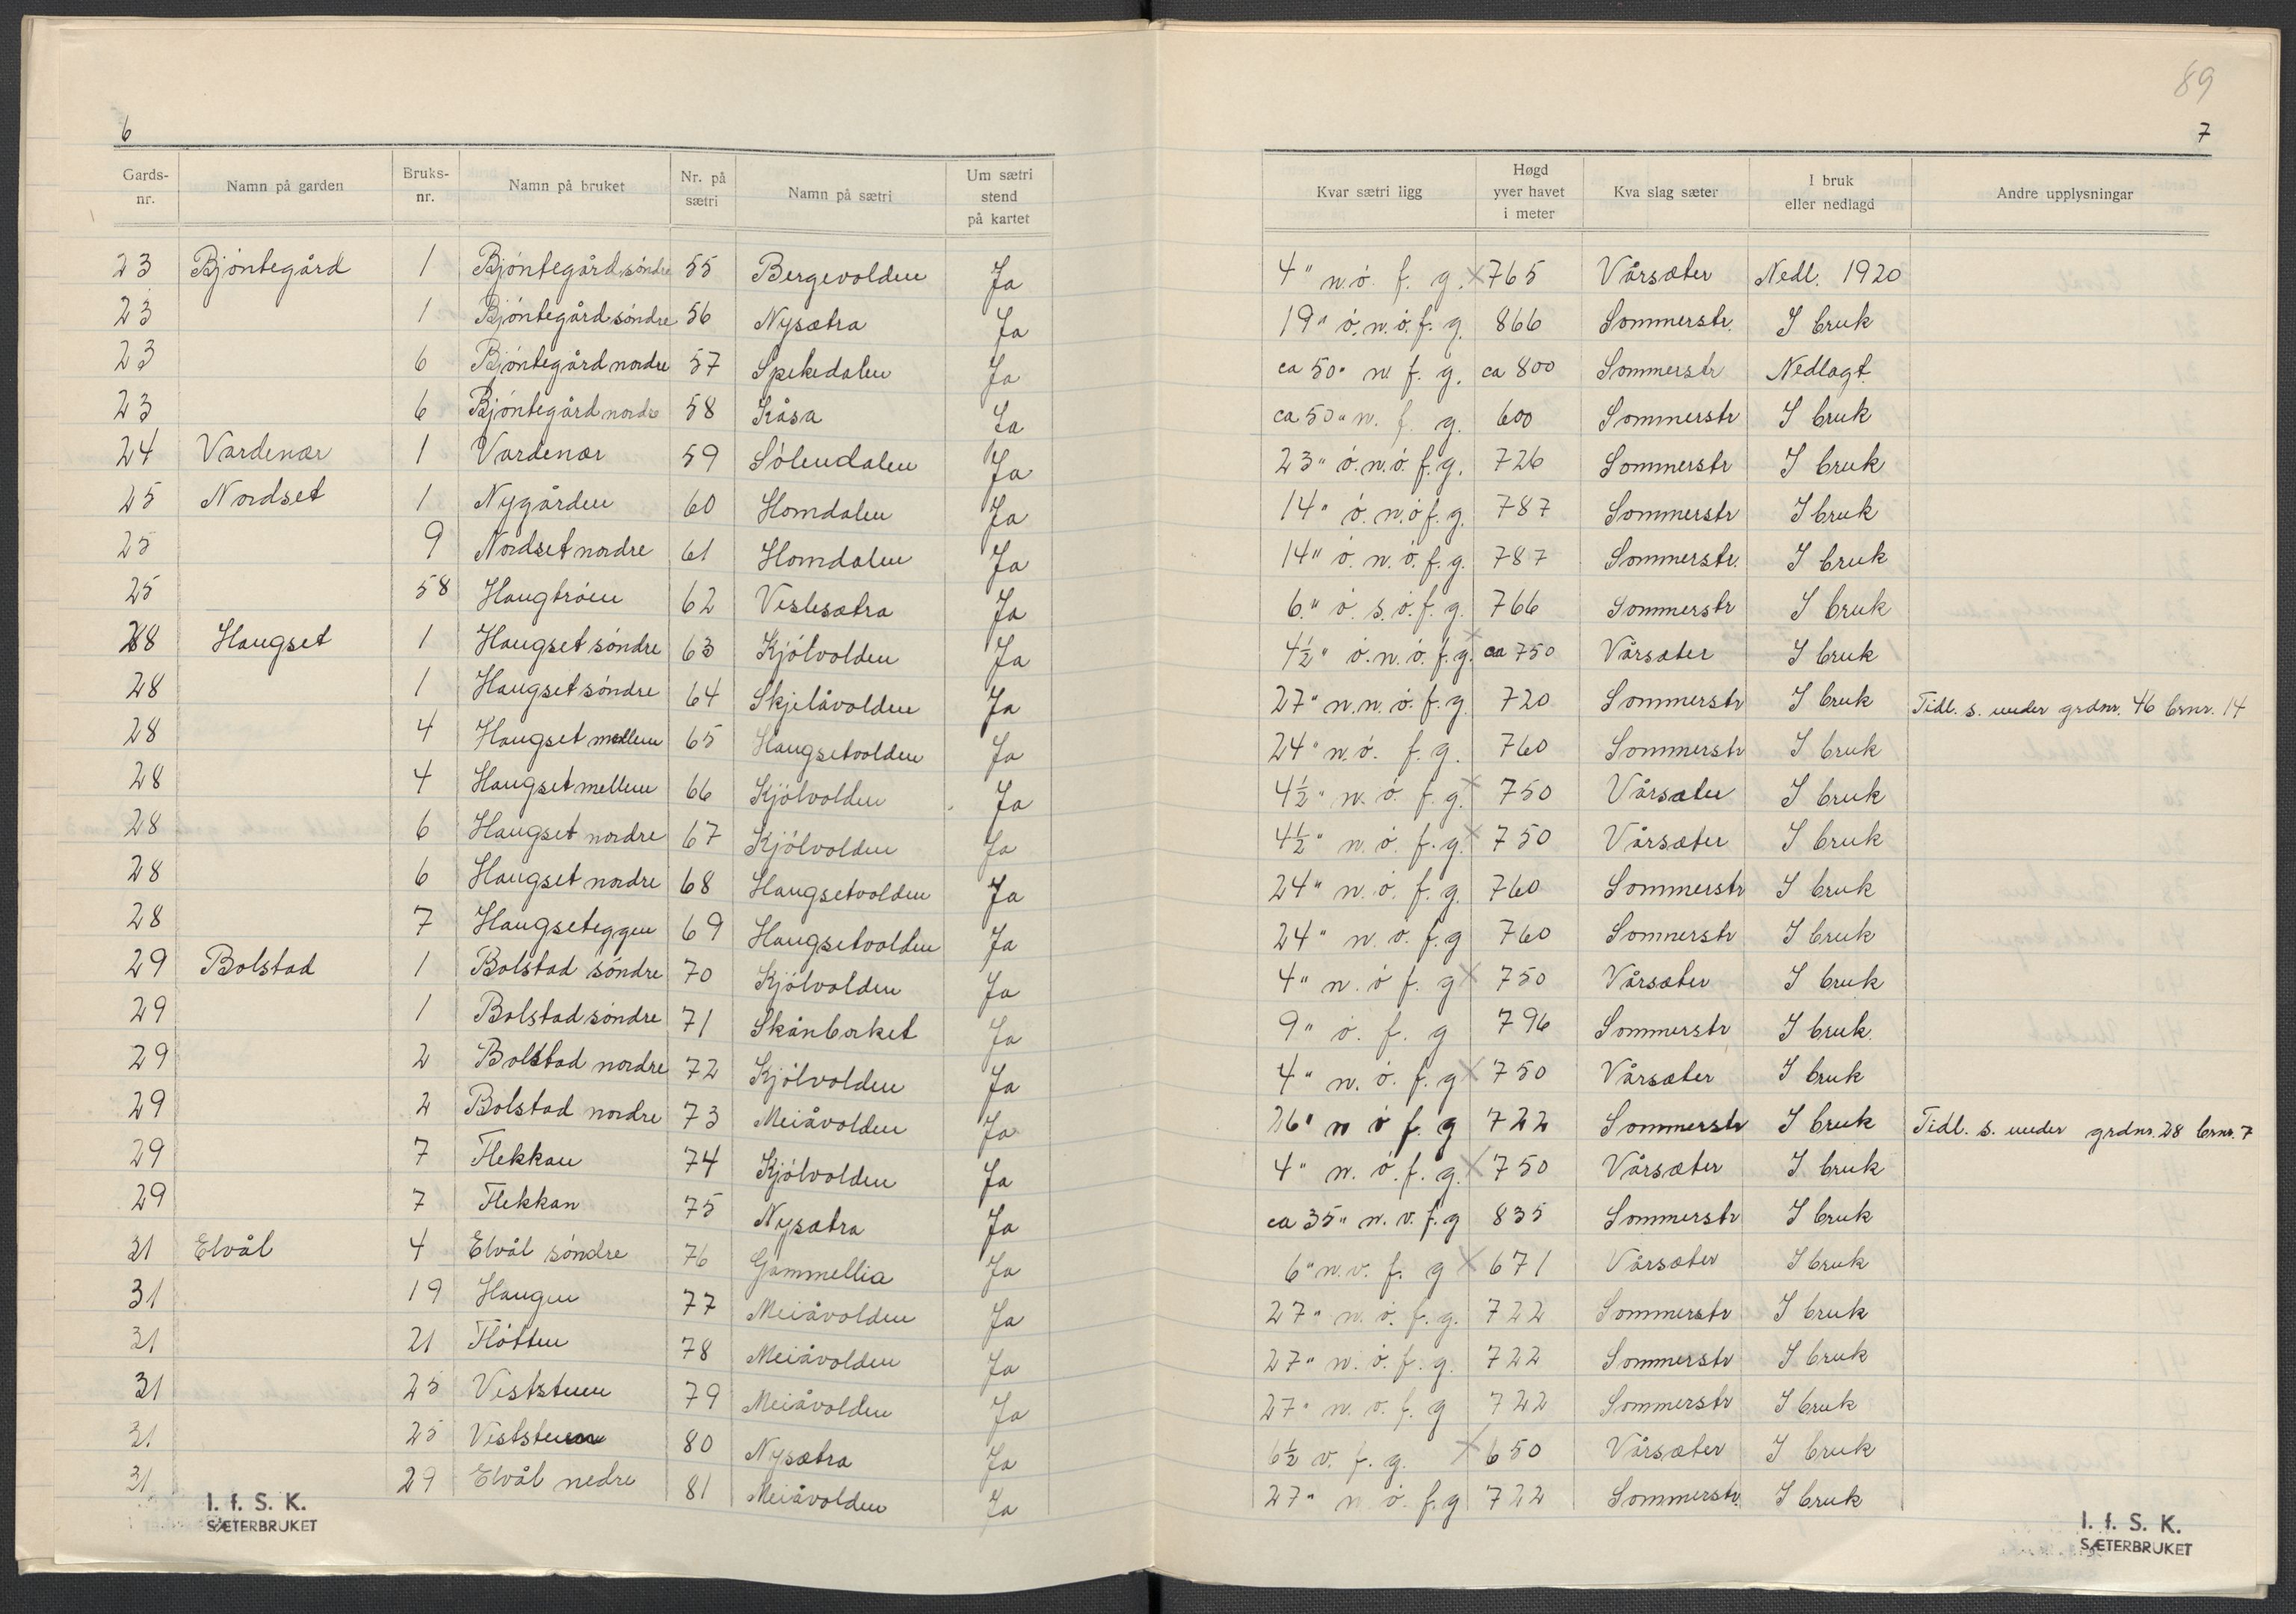 89
6
7
Gards-nr. Namn på garden Bruks-nr. Namn på bruket Nr. på sætri Namn på sætri Um sætri stend på kartet Kvar sætri ligg Høgd yver havet i meter Kva slag sæter I bruk eller nedlagd Andre upplysningar
23 Bjöntegård 1 Bjöntegård söndre 55 Bergevolden Ja 4" n.ö. f. g. x 765 Vårsæter Nedl. 1920
23 1 Bjöntegård söndre 56 Nysætra Ja 19" ö.n.ö. f. g. 866 Sommerstr. I bruk
23 6 Bjöntegård nordre 57 Spekedalen Ja ca 50" n f. g. ca 800 Sommerstr Nedlagt.
23 6 Bjöntegård nordre 58 Kåsa Ja ca 50" n. f. g. 600 Sommerstr I bruk
24 Vardenær 1 Vardenær 59 Sölendalen Ja 23" ö.n.ö. f. g. 726 Sommerstr I bruk
25 Nordset 1 Nygården 60 Homdalen Ja 14" ö.n.ö f. g. 787 Sommerstr I bruk
25 9 Nordset nordre 61 Homdalen Ja 14" ö.n.ö. f. g. 787 Sommerstr. I bruk
25 58 Haugtröen 62 Veslesætra Ja 6" ö.s.ö. f. g. 766 Sommerstr I bruk
28 Haugset 1 Haugset söndre 63 Kjölvolden Ja 4½" ö.n.ö. f. g. x ca 750 Vårsæter I bruk
28 1 Haugset söndre 64 Skjelåvolden Ja 27" n.n.ö. f. g. 720 Sommerstr I bruk Tidl. s. under grdnr. 46 brnr. 14
28 4 Haugset mellem 65 Haugsetvolden Ja 24" n.ö. f. g. 760 Sommerstr I bruk
28 4 Haugset mellem 66 Kjölvolden Ja 4½" n.ö. f. g. x 750 Vårsæter I bruk
28 6 Haugset nordre 67 Kjölvolden Ja 4½" n.ö. f. g. x 750 Vårsæter I bruk
28 6 Haugset nordre 68 Haugsetvolden Ja 24" n.ö. f. g. 760 Sommerstr I bruk
28 7 Haugseteggen 69 Haugsetvolden Ja 24" n.ö. f. g 760 Sommerstr I bruk
29 Bolstad 1 Bolstad söndre 70 Kjölvolden Ja 4" n.ö f. g x 750 Vårsæter I bruk
29 1 Bolstad söndre 71 Skånbæket Ja 9" ö. f. g 796 Sommerstr I bruk.
29 2 Bolstad nordre 72 Kjölvolden Ja 4" n.ö. f. g x 750 Vårsæter I bruk
29 2 Bolstad nordre 73 Meiåvolden Ja 26" n ö f. g 722 Sommerstr I bruk Tidl. s. under grdnr. 28 brnr. 7
29 7 Flekkan 74 Kjölvolden Ja 4" n.ö. f. g. x 750 Vårsæter I bruk
29 7 Flekkan 75 Nysætra Ja ca 35" n.v. f. g 835 Sommerstr I bruk
31 Elvål 4 Elvål söndre 76 Gammellia Ja 6" n.v. f. g x 671 Vårsæter I bruk
31 19 Haugen 77 Meiåvolden Ja 27" n.ö. f. g. 722 Sommerstr I bruk
31 21 Flötten 78 Meiåvolden Ja 27" n.ö. f. g. 722 Sommerstr I bruk
31 25 Veststuen 79 Meiåvolden Ja 27" n.ö. f. g 722 Sommerstr I bruk
31 25 Veststuen 80 Nysætra Ja 6½ v. f. g. x 650 Vårsæter I bruk
31 29 Elvål nedre 81 Meiåvolden Ja 27" n.ö. f. g 722 Sommerstr. I bruk
I. f. S. K.
SÆTERBRUKET
I. f. S. K.
SÆTERBRUKET